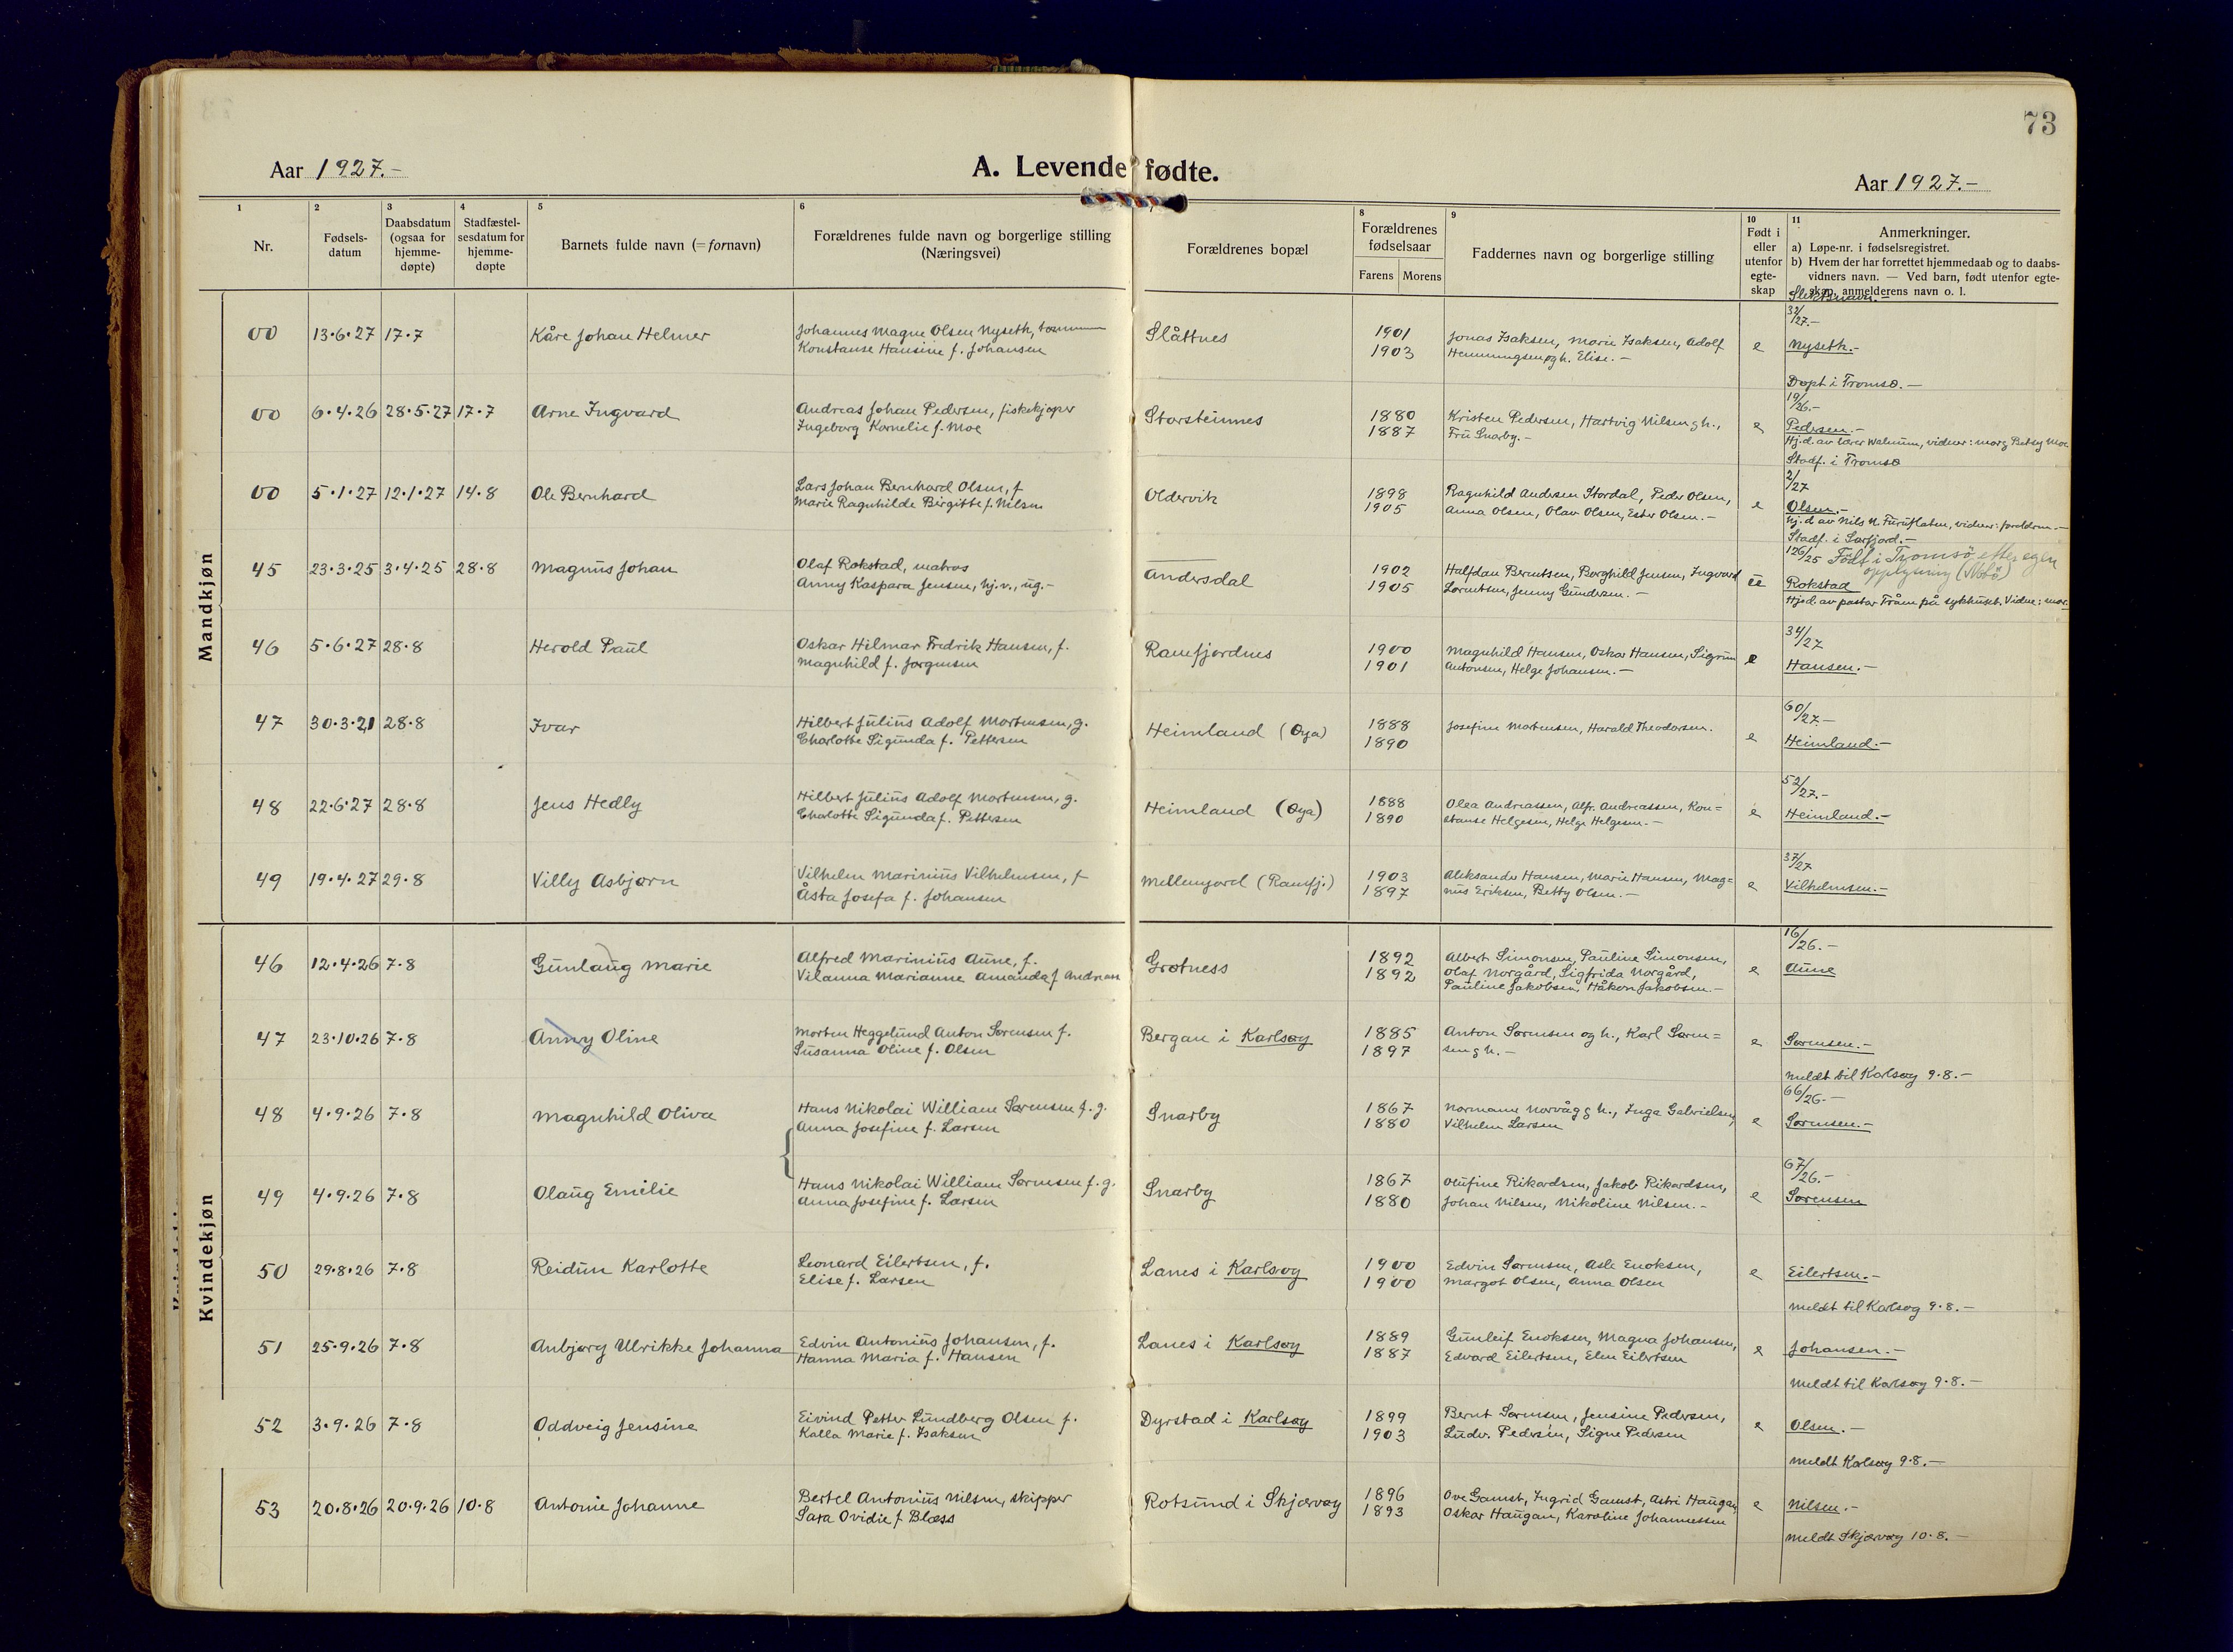 73
Aar 1927.-
A. Levende fødte.
Aar 1927.-
1 2 3 4 5 6 7 8 9 10 11
Nr.
Fødsels-
datum
Daabsdatum
(ogsaa for
hjemme-
døpte)
Stadfæstel-
sesdatum for
hjemme-
døpte
Barnets fulde navn (=fornavn)
Forældrenes fulde navn og borgerlige stilling
(Næringsvei)
Forældrenes bopæl
Forældrenes
fødselsaar
Farens Morens
Faddernes navn og borgerlige stilling
Født i
eller
utenfor
egte-
skap
Anmerkninger.
a) Løpe-nr. i fødselsregistret.
b) Hvem der har forrettet hjemmedaab og to daabs-
vidners navn. — Ved barn, født utenfor egte-
skap, anmelderens navn o. l.
Mandkjøn
00 13.6.27 17.7 Kåre Johan Helmer
Johannes Magne Olsen Nyseth,
Konstanse Hansine f. Johansen
Slåttnes
1901
1903
Jonas Isaksen, Marie Isaksen, Adolf
Henningsen og h. Elise.-
e
32/27.-
Nyseth.-
Døpt i Tromsø.-
00 6.4.26 28.5.27 17.7 Arne Ingvard
Andreas Johan Pedersen, fiskekjøper
Ingeborg Kornelie f. Moe
Storsteinnes
1880
1887
Kristen Pedersen, Hartvig Nilsen g h.,
Fru Snarby.-
e
19/26.-
Pedersen.-
Hj.d. av lærer Walnum, vidner: Marg Betsy Moe
Stadf. i Tromsø
00 5.1.27 12.1.27 14.8 Ole Bernhard
Lars Johan Bernhard Olsen, f
Marie Ragnhilde Birgitte f. Nilsen
Oldervik
1898
1905
Ragnhild Andersen Stordal, Peder Olsen,
Anna Olsen, Olav Olsen, Ester Olsen.-
e
2/27
Olsen.-
Hj.d av Nils N. Furuflaten, vidner: foreldren.-
Stadf. i Sørfjord.-
45 23.3.25 3.4.25 28.8 Magnus Johan
Olaf Rokstad, matros
Anny Kaspara Jensen, hj.v., ug.-
Andersdal
1902
1905
Halfdan Berntsen, Borghild Jensen, Ingvard
Lorentsen, Jenny Gundersen.-
ue
126/25 Født i Tromsø efter egen
opplysning
Rokstad
Hjd. av pastor Tråen på sykhuset. Vidne: mor.
46 5.6.27 28.8 Herold Paul
Oskar Hilmar Fredrik Hansen, f.
Magnhild f. Jørgensen
Ramfjordnes
1900
1901
Magnhild Hansen, Oskar Hansen, Sigrun
Antonsen, Helge Johansen.-
e
34/27
Hansen.-
47 30.3.21 28.8 Ivar
Hilbert Julius Adolf Mortensen, g.
Charlotte Sigunda f. Pettersen
Heimland (Øya)
1888
1890
Josefine Mortensen, Harald Theodorsen.
e
60/27.-
Heimland.-
48 22.6.27 28.8 Jens Hedly
Hilbert Julius Adolf Mortensen, g.
Charlotte Sigunda f. Pettersen
Heimland (Øya)
1888
1890
Olea Andreassen, Alfr. Andreassen, Kon=
stanse Helgesen, Helge Helgesen.-
e
52/27.-
Heimland.-
49 19.4.27 29.8 Villy Asbjørn
Vilhelm Marinius Vilhelmsen, f
Åsta Josefa f. Johansen
Mellemjord (Ramfj.)
1903
1897
Aleksander Hansen, Marie Hansen, Mag=
nus Eriksen, Betty Olsen.-
e
37/27
Vilhelmsen.-
Kvindekjøn
46 12.4.26 7.8 Gunlaug Marie
Alfred Marinius Aune, f.
Vilanna Marianne Amanda f
Grøtness
1892
1892
Albert Simonsen, Pauline Simonsen,
Olaf Norgård, Sigfrida Norgård,
Pauline Jakobsen, Håkon Jakobsen.-
e
16/26.-
Aune
47 23.10.26 7.8 Anny Oline
Morten Heggelund Anton Sørensen f.
Susanna Oline f. Olsen
Bergan i Karlsøy
1885
1897
Anton Sørensen og h., Karl Søren=
sen g h.-
e
Sørensen.-
Meldt til Karlsøy 9.8.-
48 4.9.26 7.8 Magnhild Oliva
Hans Nikolai William Sørensen f. g.
Anna Josefine f. Larsen
Snarby
1867
1880
Normann Norvåg g h., Inga Gabrielsen,
Vilhelm Larsen
e
66/26.-
Sørensen.-
49 4.9.26 7.8 Olaug Emilie
Hans Nikolai William Sørensen f. g.
Anna Josefine f. Larsen
Snarby
1867
1880
Olufine Rikardsen, Jakob Rikardsen,
Johan Nilsen, Nikoline Nilsen.-
e
67/26.-
Sørensen
50 29.8.26 7.8 Reidun Karlotte
Leonard Eilertsen, f.
Elise f. Larsen
Lanes i Karlsøy
1900
1900
Edvin Sørensen, Asle Enoksen,
Margot Olsen, Anna Olsen
e
Eilertsen.-
Meldt til Karlsøy 9.8.-
51 25.9.26 7.8 Anbjørg Ulrikke Johanna
Edvin Antonius Johansen, f.
Hanna Maria f. Hansen
Lanes i Karlsøy
1889
1887
Gunleif Enoksen, Magna Johansen,
Edvard Eilertsen, Elen Eilertsen
e
Johansen.-
Meldt til Karlsøy 9.8.-
52 3.9.26 7.8 Oddveig Jensine
Eivind Petter Lundberg Olsen f.
Kalla Marie f. Isaksen
Dyrstad i Karlsøy
1899
1903
Bernt Sørensen, Jensine Pedersen,
Ludv. Pedersen, Signe Pedersen
e
Olsen.-
Meldt Karlsøy 9.8.-
53 20.8.26 20.9.26 10.8 Antonie Johanne
Bertel Antonius Nilsen, skipper
Sara Ovidie f. Blæss
Rotsund i Skjærvøy
1896
1893
Ove Gamst, Ingrid Gamst, Astri Haugan,
Oskar Haugan, Karoline Johannessen
e
Nilsen.-
Meldt Skjærvøy 10.8.-